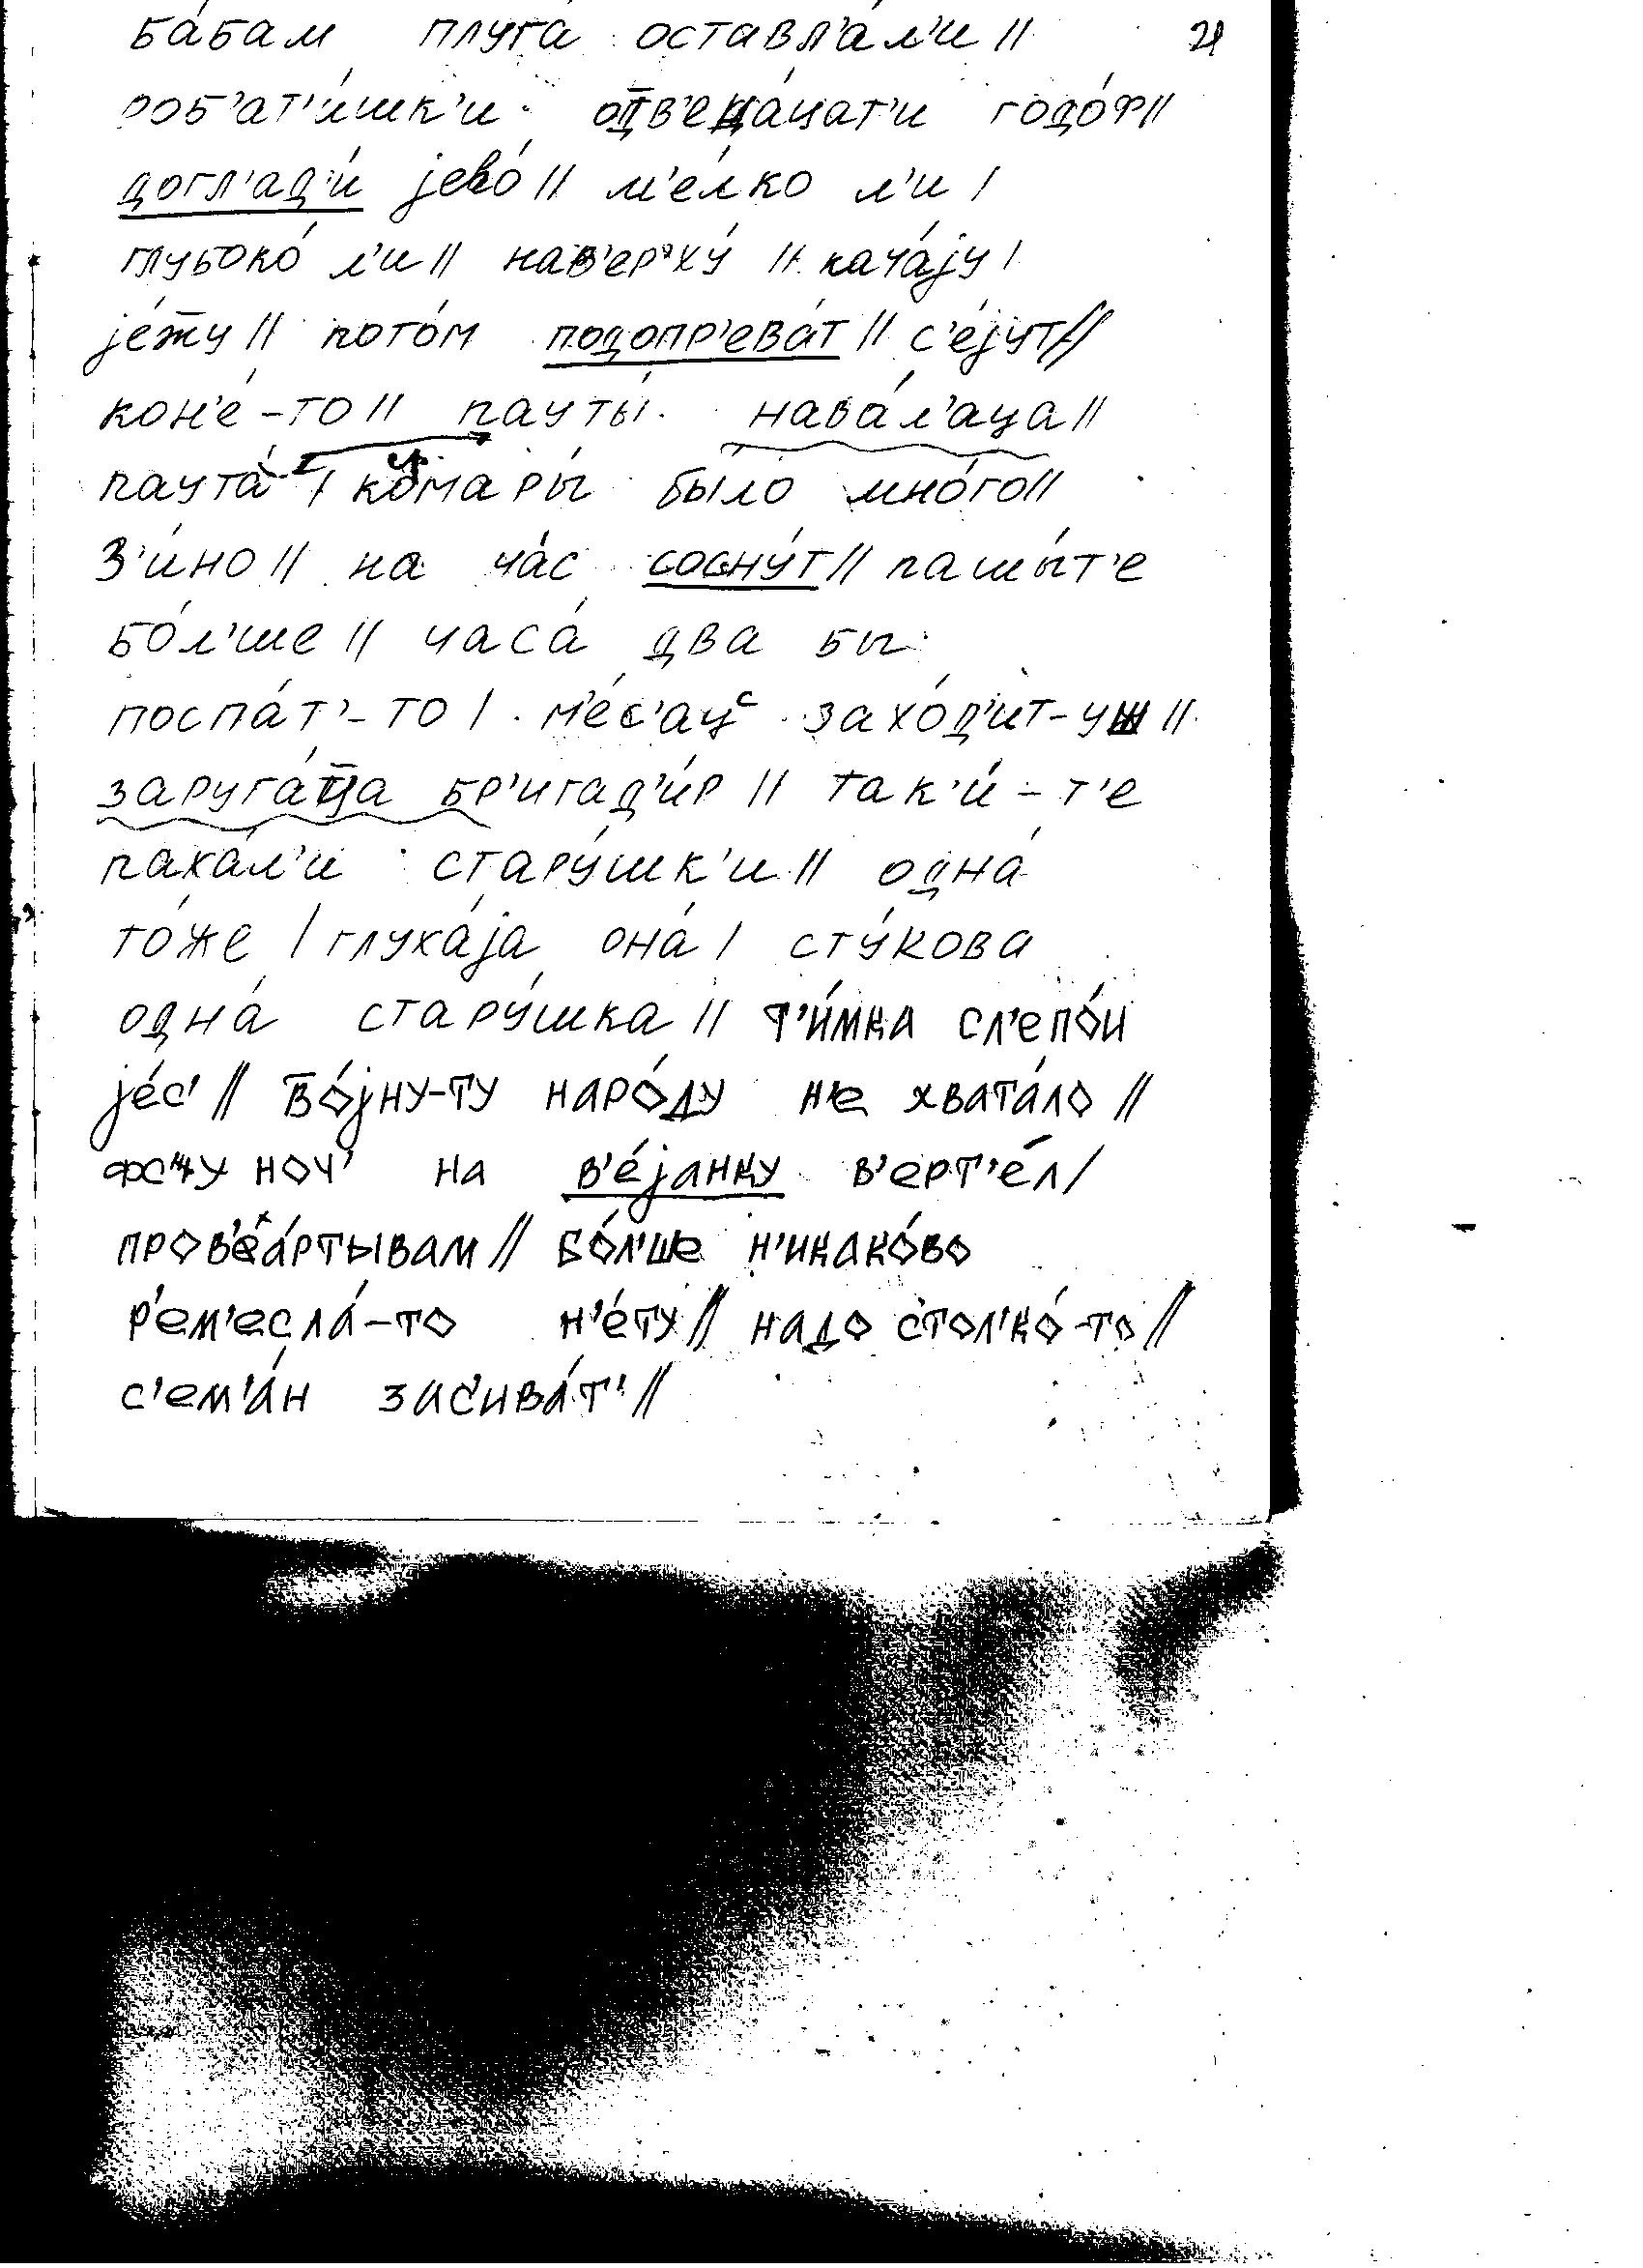 ба́бам плуга́ оставл'а́л'и // 21
роб'ат'и́шк'и одв'ена́цат'и годо́ф//
догл'ад'и́ jево́ // м'е́лко л'и /
глубоко́ л'и // нав'ерху́ // кача́jу /
jе́жу // пото́м подопр'ева́т // с'е́jут//
кон'е́-то // пауты́ нава́л'аца //
паута́ / комары́ бы́ло мно́го//
З'и́но // на ча́с сосну́т // пашы́т'е
бо́л'ше // часа́ два бы
поспа́т'-то / м'е́с'ац захо́д'ит-уш //
заруга́ца бр'игад'и́р // так'и́-т'е
паха́л'и стару́шк'и // одна́
то́же / глуха́jа она́ / сту́кова
одна́ стару́шка // т'и́мка сл'епо́и
jе́с' // во́jну-ту наро́ду не хвата́ло //
фс'у ноч' на в'е́jанку в'ерт'е́л /
пров'а́ртывам // бо́л'ше н'икако́во
р'ем'есла́-то н'е́ту // надо стол'ко́-то //
с'ем'а́н зас'ива́т' //